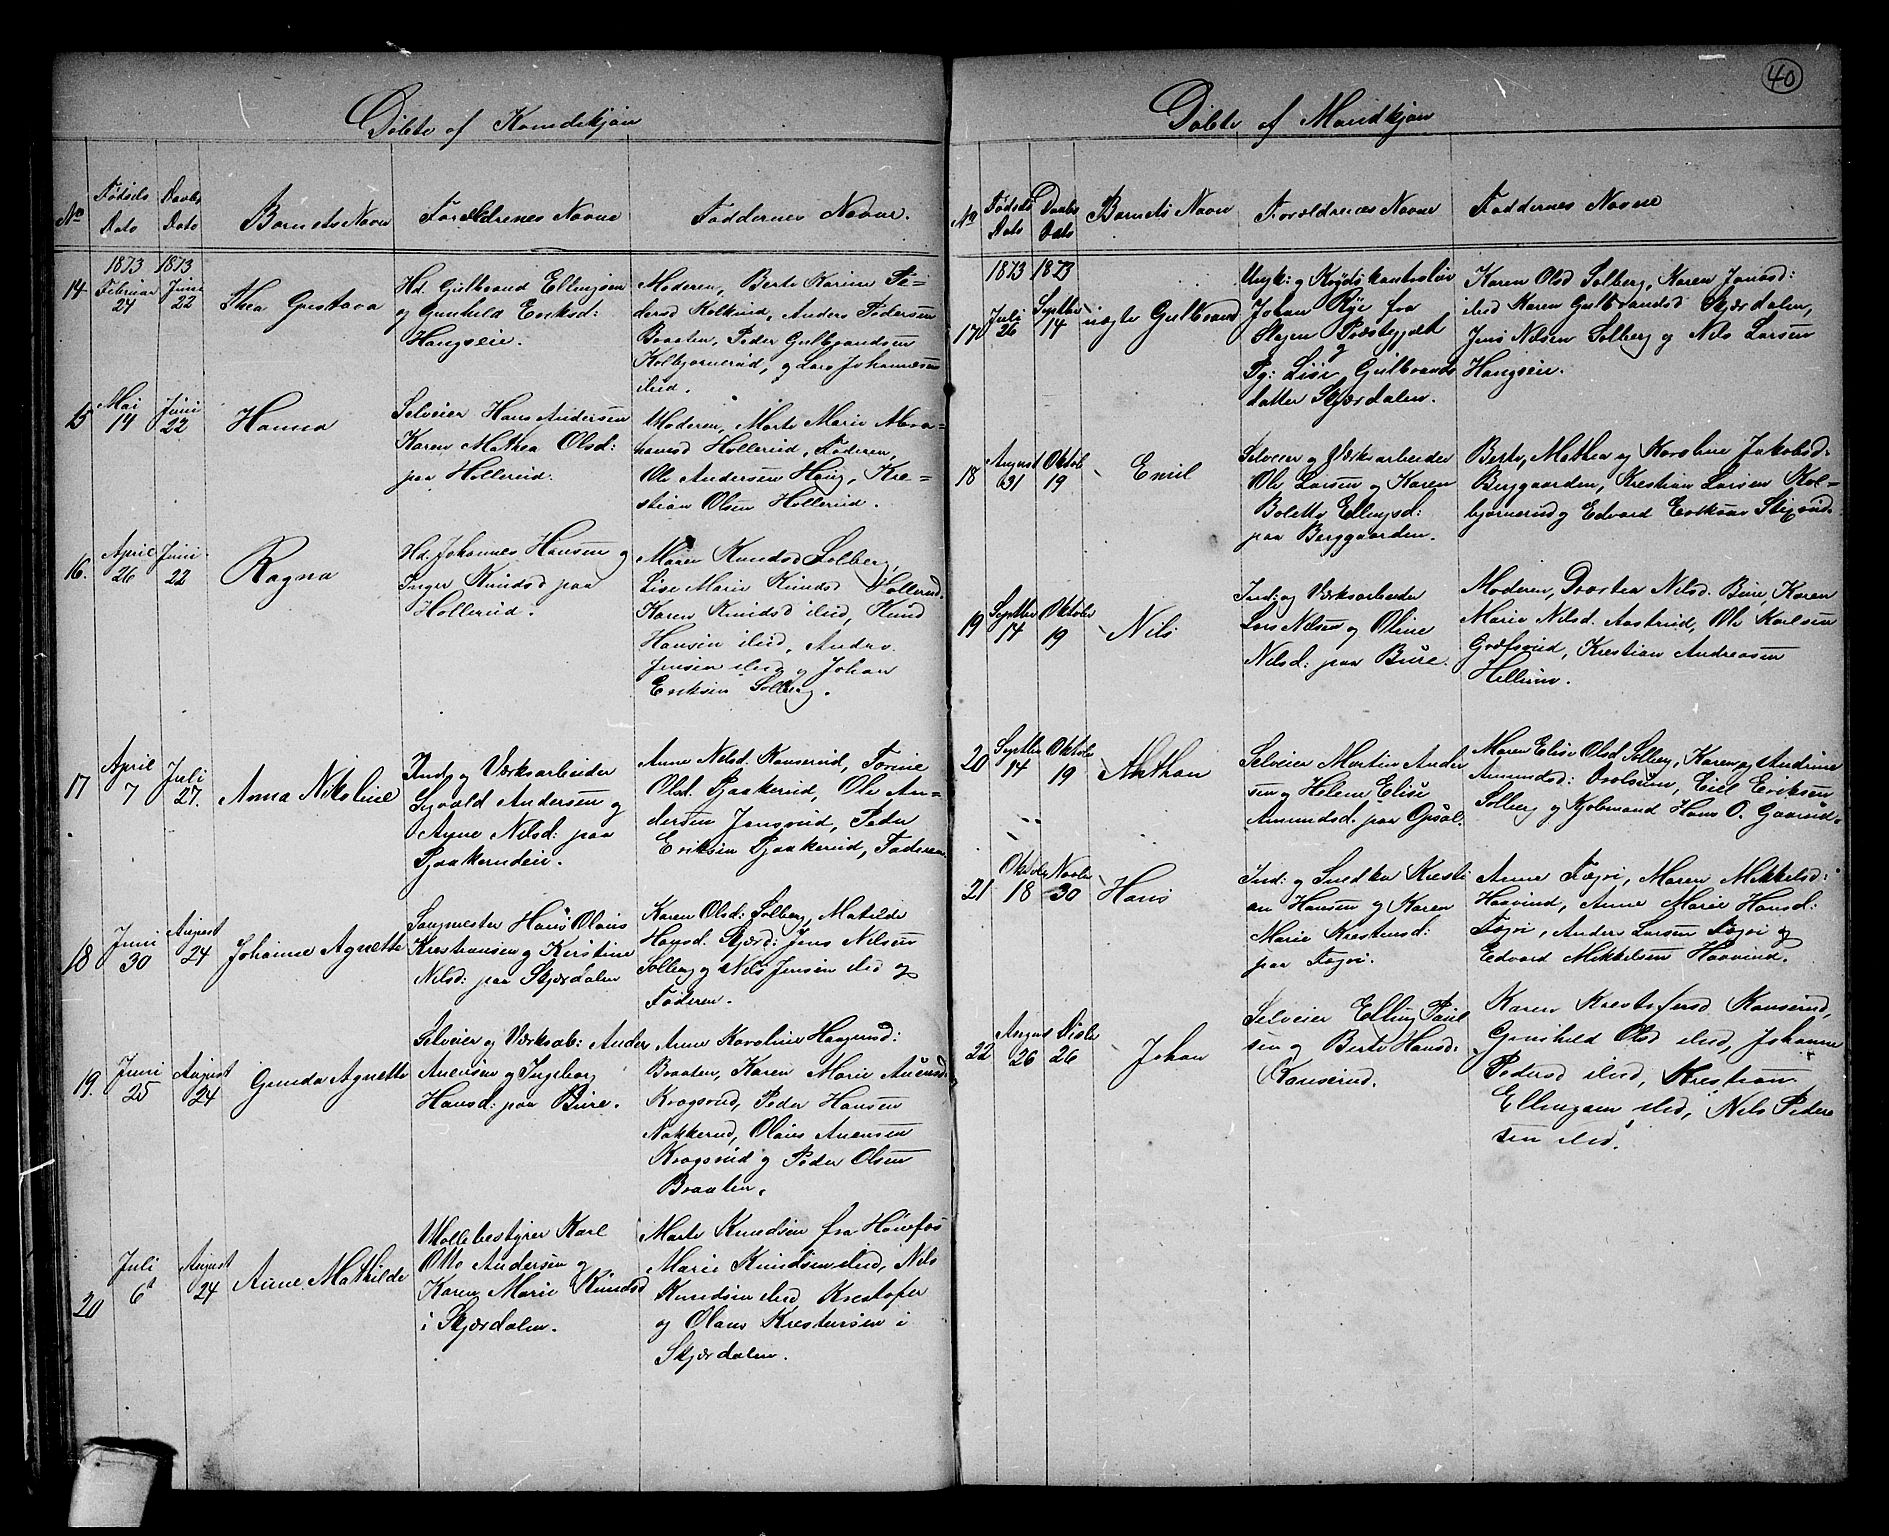 40
Døbte af Kvindekjøn
No
Fødsels Dato
Daabs Dato
Barnets Navn
Forældrenes Navne
Faddernes Navne.
1873 1873
14 Februar 24 Juni 22 Thea Gustava
Hd. Gulbrand Ellingsen
og Gunhild Eriksd:
Haugseie.
Moderen, Berte Karine Pe-
dersd Kolkind, Anders Pedersen
Braaten, Peder Gulbrandsen
Kolbjørnerud, og Lars Johannesen
ibid.
15 Mai 19 Juni 22 Hanna
Selveier Hans Andersen
Karen Mathea Olsd:
paa Hollerud.
Moderen, Marte Marie
Hollerud, Faderen,
Ole Andersen Haug, Kre-
stian Olsen Hollerud.
16. April 26 Juni 22 Ragna
Hd. Johannes Hansen og
Inger Knudsd paa
Hollerud.
Maren Knudsd Solberg,
Lise Marie Knudsd Hollerud.
Karen Knudsd ibid, Knud
Hansen ibid, Anders
Jensen ibid og Johan
Eriksen Solberg.
17 April 7 Juli 27. Anna Nikoline
Ind. og Værksarbeider
Syvald Andersen og
Anne Nilsd: paa
Pjaakerudeie.
Anne Nilsd. Ranserud, Torine
Olsd. Pjaakerud, Ole An-
dersen Jonsrud, Peder
Eriksen Pjaakerud, Faderen.
18 Juni 30 August 24 Johanne Agnette
Saugmester Hans Olaus
Krestiansen og Kirstine
Nilsd: paa Skjærdalen
Karen Olsd: Solberg, Matilde
Hansd. Skjærd: Jens Nilsen
Solberg og Nils Jensen ibid og
Faderen.
19. Juni 25 August 24 Gunda Agnette
Selveier og Værksab: Ander
Auensen og Ingeborg
Hansd: paa Bure.
Anne Karoline Haagensd:
Braaten, Karen Marie Auensd.
Krogsrud, Peder Hansen
Nakkerud, Olaus Auensen
Krogsrud og Peder Olsen
Braaten.
20 Juli 6 August 24 Anne Mathilde
Møllebestyrer Karl
Otto Andersen og
Karen Marie Knudsd
i Skjærdalen.
Marte Knudsen fra Hønefos
Marie Knudsen ibid, Nils
Knudsen ibid Krestofer
og Olaus Krestensen i
Skjærdalen.
Døbte af Mandkjøn
No
Fødsels Dato
Daabs Dato
Barnets Navn
Forældrenes Navne
Faddernes Navne
1873 1873
17 Juli 26 Septber 14 uægte Gulbrand
Ungk: og
Johan Rye fra
Slagen Præstegjeld
og
Pg: Lise Gulbrands
datter Skjærdalen.
Karen Olsd Solberg, Karen Jensd:
ibid Karen Gulbrandsd Skjærdalen,
Jens Nilsen Solberg og Nils Larsen
Haugseie.
18 August 31 Oktob 19 Emil
Selveier og Værksarbeider
Ole Larsen og Karen
Bolette Ellingsd:
paa Berggaarden.
Berte, Mathea og Karoline Jakobsd.
Berggaarden, Krestian Larsen Kol-
bjørnerud og Edvard Eriksen
19 Septber 14 Oktober 19 Nils
Ind: og Værksarbeider
Lars Nilsen og Oline
Nilsd: paa Bure.
Moderen, Dorthea Nilsd. Bure, Karen
Marie Nilsd. Aasterud, Ole Karlsen
Græfsrud, Krestian Andreasen
20 Septber 14 Oktober 19 Anthon
Selveier Martin Ander
sen og Helene Elise
Amundsd. paa Opsal.
Maren Elise Olsd. Solberg, Karen og Andrine
Amundsd: Emil Eriksen
Solberg og Hans O. Gaarud.
21 Oktober 18 Novbr 30 Hans
Ind: og Snedker Kresti
an Hansen og Karen
Marie Krestensd:
paa Fegri.
Anne Fegri, Maren Mikkelsd:
Haavind, Anne Marie Hansd:
Fegri, Anders Larsen Fegri og
Edvard Mikkelsen Haavind.
22 August 26 Decbr 26 Johan
Selveier Elling Paul
sen og Berte Hansd:
Ranserud.
Karen Krestofersd Ranserud,
Gunhild Olsd ibid, Johanne
Pedersd ibid, Krestian
Ellingsen ibid, Nils Peder
sen ibid.